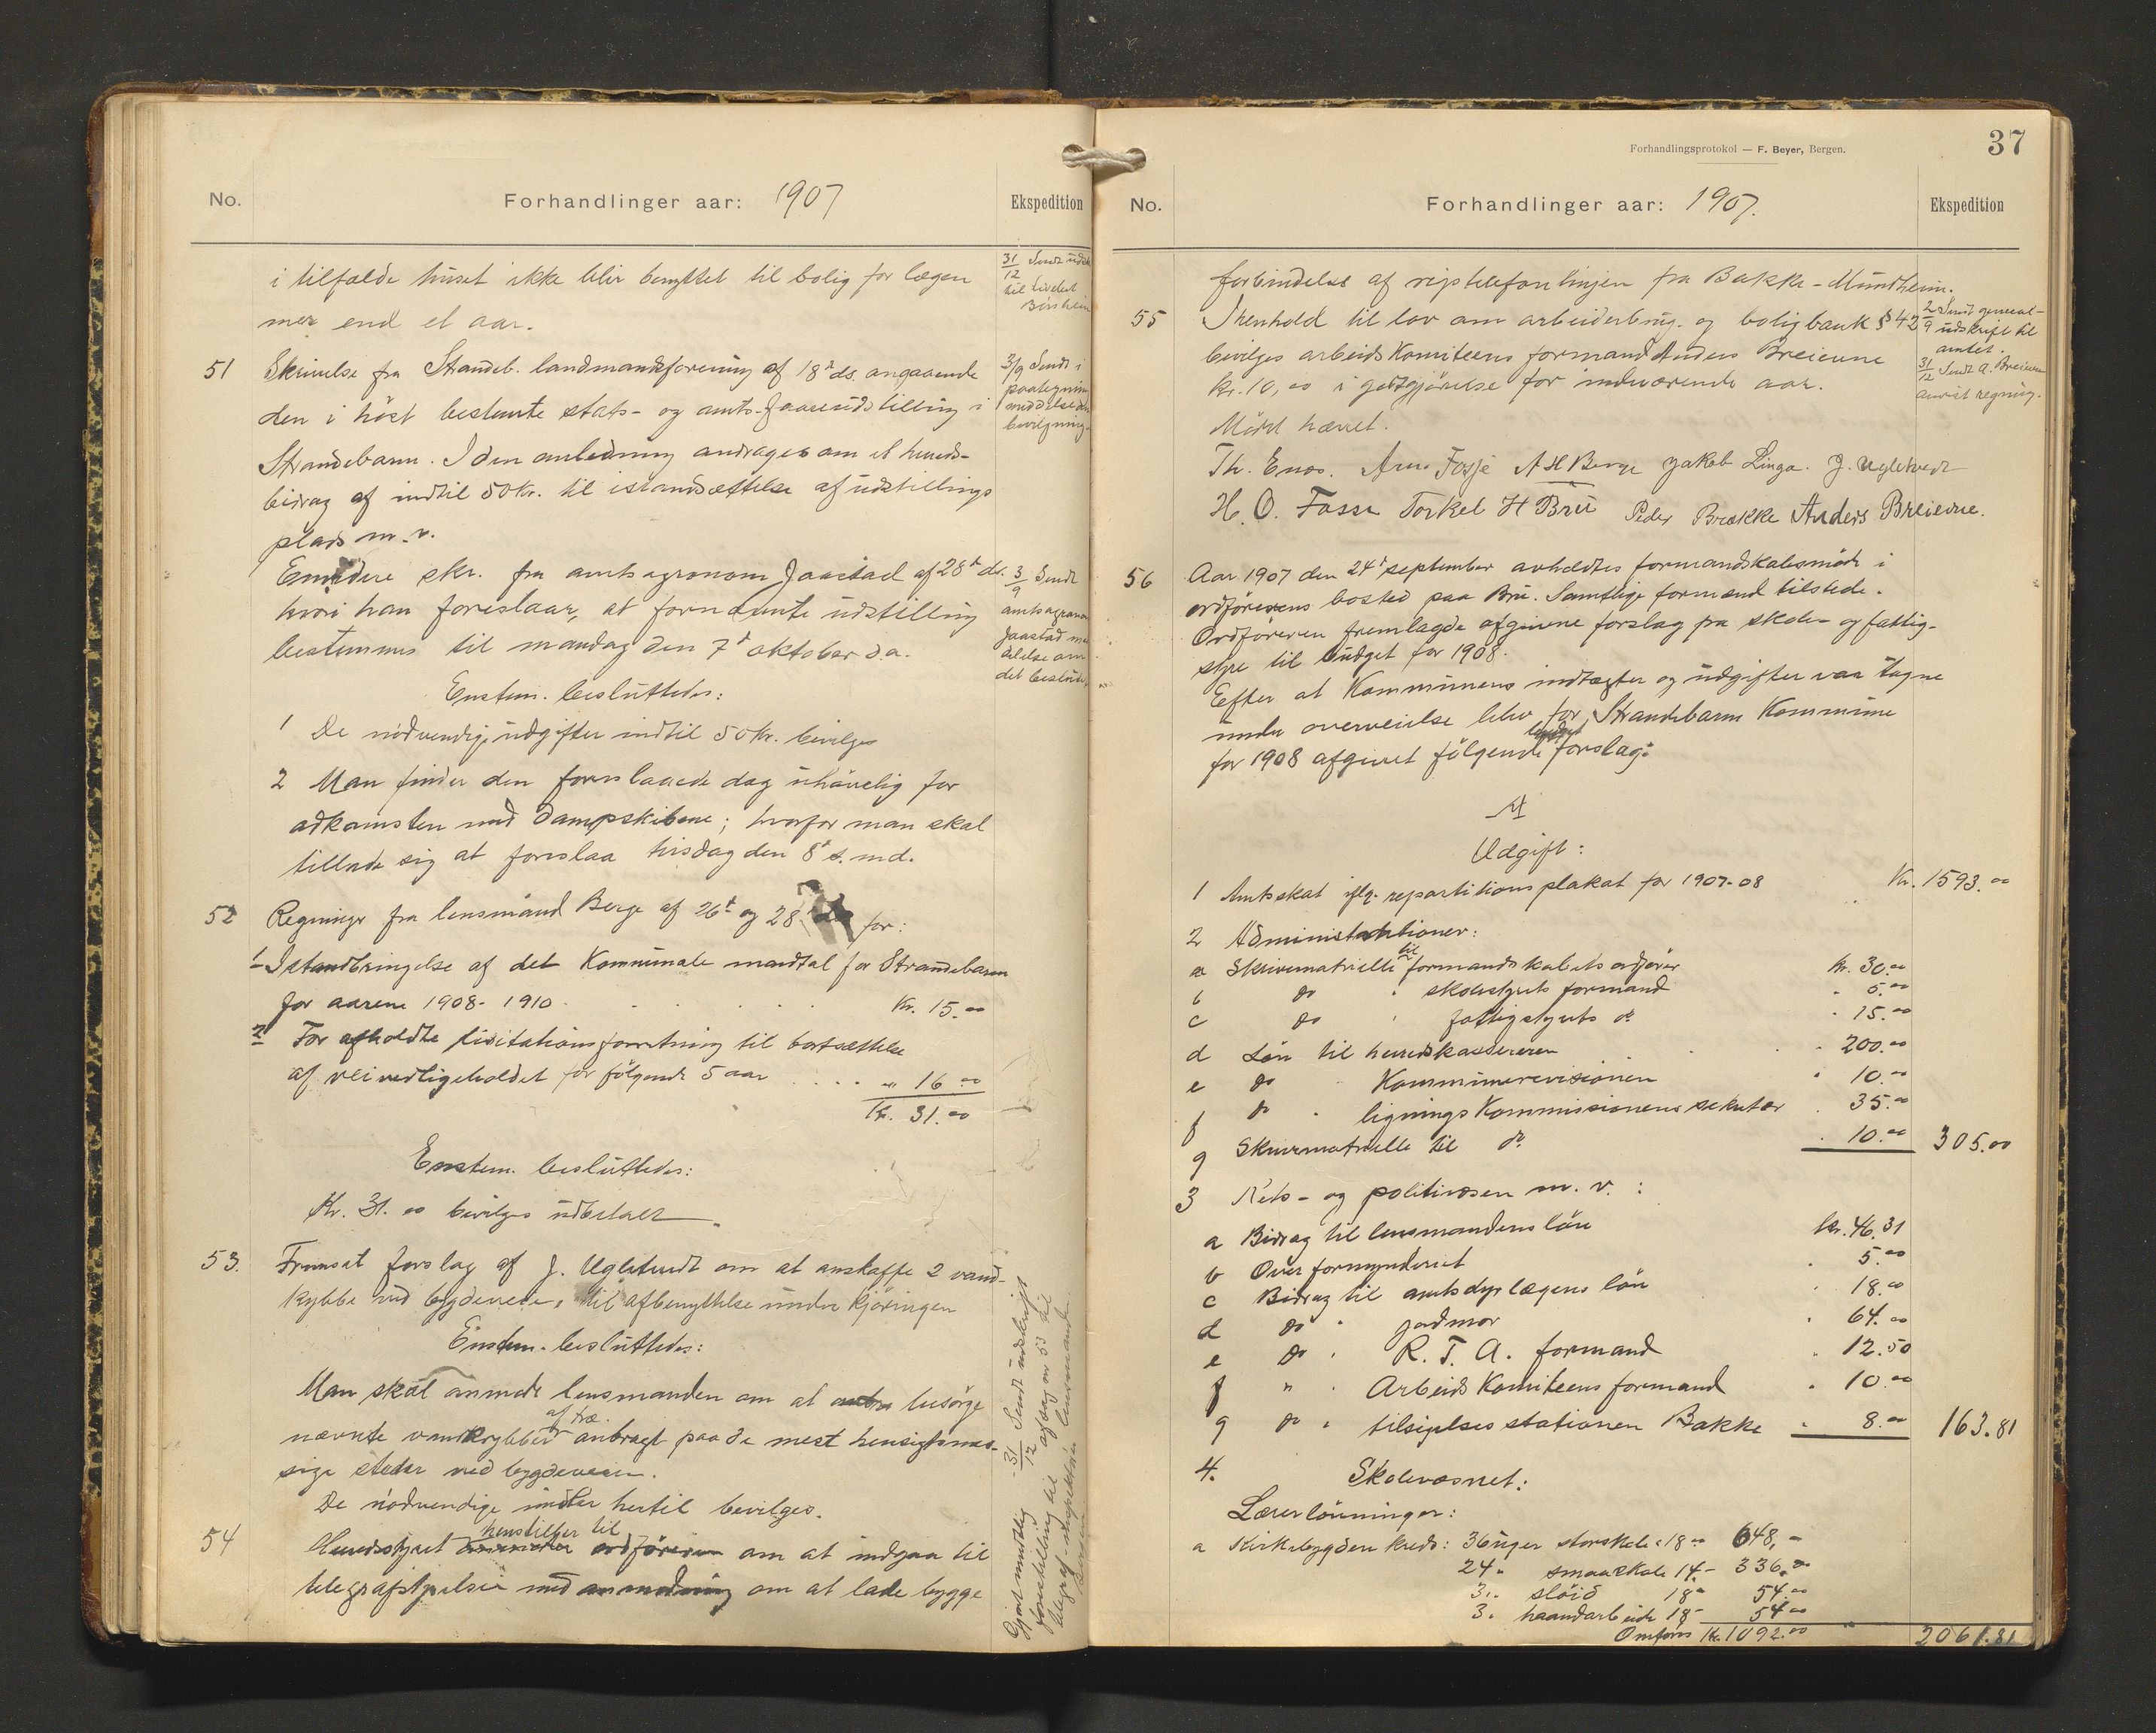 No. Forhandlinger aar: 1907 Ekspedition
i tilfælde huset ikke blir benyttet til bolig for lægen
mer end et aar.
51 Skrivelse fra Strandeb. landmandsforening af 18de ds. angaaende
den i höst bestemte stats- og amts-faareudstilling i
Strandebarm. I den anledning andrages om et herreds-
bidrag af indtil 50 Kr. til istandsættelse af udstillings
plads m.v.
Endvidere skr. fra amtsagronom Jaastad af 28de ds.
hvori han foreslaar, at fornævnte udstilling
bestemmes til mandag den 7de oktober d.a.
Enstem. besluttedes:
1 De nödvendige udgifter indtil 50 Kr. bevilges
2 Man finder den foreslaaede dag uhövelig for
adkomsten med dampskibene; hvorfor man skal
tillade sig at foreslaa tirsdag den 8de s. md.
52 Regninger fra lensmand Berge af 26de og 28 for:
1 Istandbringelse af det Kommunale mandtal for Strandebarm
for aarene 1908-1910 . . . . Kr. 15.00
2 For afholdte licitationsforretning til bortsættelse
af veivedligeholdet for fölgende 5 aar . . . . " 16 00
Kr. 31.00
Enstem. besluttedes:
Kr. 31.00 bevilges udbetalt.
53. Fremsat forslag af J. Ugletvedt om at anskaffe 2 vand-
krybbe ved bygdeveien, til afbenyttelse under kjöringen
Enstem. besluttedes:
Man skal anmode lensmanden om at besörge
af træ.
nævnte vandkrybber anbragt paa de mest hensigtsmæs-
sige steder ved bygdeveien.
De nödvendige midler hertil bevilges.
henstiller til
54 Herredsstyret ordföreren om at indgaa til
telegrafstyrelsen med anmodning om at lade bygge
31/12 Sendt udskr.
til
3/9 Sendt i
paategning
meddelse om
bevilgning.
3/9 Sendt
amtsagronom
Jaastad med-
delelse om
det beslut.
Gjort mundtlig forestilling til
31/12 Sendt udskrift
af sag nr 53 til
lensmanden
Bergen
Forhandlingsprotokol — F. Beyer, Bergen.
37
No. Forhandlinger aar: 1907. Ekspedition
forbindelse af rigstelefonlinjen fra Bakke-Mundheim.
55 I henhold til lov om arbeiderbrug- og boligbank § 42
bevilges arbeidskomiteens formand Anders Breievne
kr. 10,00 i godtgjörelse for indeværende aar.
Mödet hævet.
2/9 Sendt general-
udskrift til
amtet.
31/12 Sendt A. Breievne
anvist regning.
Th. Enos. Arne Fosse N H Berge Jakob Linga. J. Ugletvedt
H. O. Fosse Torkel H Bru Peder Brække Anders Breievne.
56 Aar 1907 den 24de september avholdtes formandskabsmöde i
ordförerens bosted paa Bru. Samtlige formænd tilstede.
Ordföreren fremlagde afgivne forslag fra skole- og fattig-
styre til budget for 1908.
Efter at Kommunens indtægter og udgifter var tagne
under overveielse blev for Strandebarm Kommune
budget
for 1908 afgivet fölgende forslag:
A
Udgift:
1 Amtsskat iflg. repartitionsplakat for 1907-08 Kr. 1593.00
2 Administrationer:
til
a Skrivematrielle formandskabets ordfører kr. 30.00
b do " skolestyrets formand " 5.00
c do " fattigstyrets do " 15.00
d Lön til herredskassereren " 200.00
e do " Kommunerevisionen " 10.00
f do " ligningskommissionens sekretær " 35.00
g Skrivematrielle til do " 10.00 305.00
3 Rets- og politivæsen m. v. :
a Bidrag til lensmandens lön kr. 46.31
b Overformynderiet " 5.00
c Bidrag til amtsdyrlægens lön " 18.00
d do " jordmor " 64.00
e do " R. T. A. formand " 12.50
f " " Arbeidskomiteens formand " 10.00
g do " tilsigelsesstationen Bakke " 8.00 163.81
4. Skolevæsnet:
Lærerlönninger:
a Kirkebygden kreds: 36 uger storskole à 18 00 648,-
24 " smaaskole 14.- 336.00
3 " slöid 18 " 54.00
3 " haandarbeide 18 - 54.00
Omføres Kr. 1092.00 " 2061.81